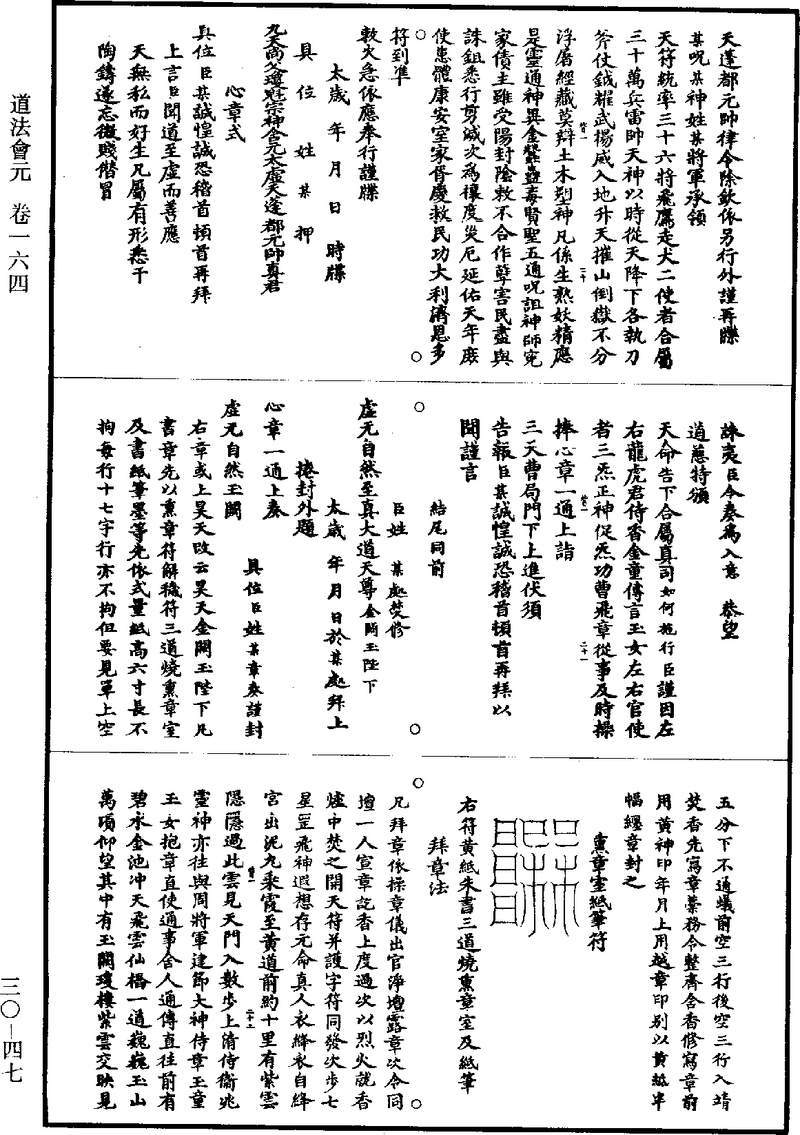 道法會元 卷一六四
天蓬都元帥律令除欽依另行外謹再牒
某呪某神姓某將軍承領
天符統率三十六將飛鷹走犬二使者合屬
三十萬兵雷帥天神以時從天降下各執刀
斧仗鉞耀武揚威入地升天摧山倒嶽不分
浮屠經藏莫辯土木塑神凡係生熟妖精應
是靈通神異金蠶蠱毒賢聖五通呪詛神師冤
家債主雖受陽封陰敕不合作孽害民盡與
誅鉏悉行剪滅次為禳度災厄延佑天年庶
使患體康安室家胥慶救民功大利濟恩多
符到準
敕火急依應奉行謹牒
太歲 年 月 日 時牒
具 位 姓 某 押
九天尚父還尅宗神含元太虛天蓬都元帥真君
心章式
具位臣某誠惶誠恐稽首頓首再拜
上言臣聞道至虛而善應
天無私而好生凡屬有形悉干
陶鑄遂忘微賤僭冒
誅夷臣今奏為入意 恭望
道慈特頒
天命告下合屬真司如何施行臣謹因左
右龍虎君侍香金童傳言玉女左右官使
者三炁正神促炁功曹飛章從事及時操
捧心章一通上詣
三天曹局門下上進伏須
告報臣某誠惶誠恐稽首頓首再拜以
聞謹言
結尾同前
臣姓 某處焚修
虛无自然至真大道天尊金闕玉陛下
太歲 年 月 日於某處拜上
捲封外題
心章一通上奏
虛无自然玉闕
具位臣姓某章奏謹封
右章或上昊天改云昊天金闕玉陛下凡
書章先以熏章符解穢符三道燒熏章室
及書紙筆墨等先依式量紙高六寸長不
拘每行十七字行亦不拘但要見罩上空
五分下不通蟻前空三行後空三行入靖
焚香先寫章藁務令整齊含香修寫章前
用黃神印年月上用越章印別以黃紙半
幅纏章封之
熏章室紙筆符
右符黃紙朱書三道燒熏章室及紙筆
拜章法
凡拜章依操章儀出官淨壇露章次令同
壇一人宣章訖香上度過次以烈火就香
爐中焚之開天符并護字符同發次步七
星罡飛神遐想存元命真人衣絳衣自絳
宮出泥九乘霞至黃道前約十里有紫雲
隱隱過此雲見天門入數步上清侍衛兆
靈神亦往與周將軍建節大神侍章玉童
玉女抱章直使通事舍人通傳直往前有
碧水金池冲天飛雲仙橋一道巍巍玉山
萬頃仰望其中有玉闕瓊樓紫雲交映見
三〇－四七